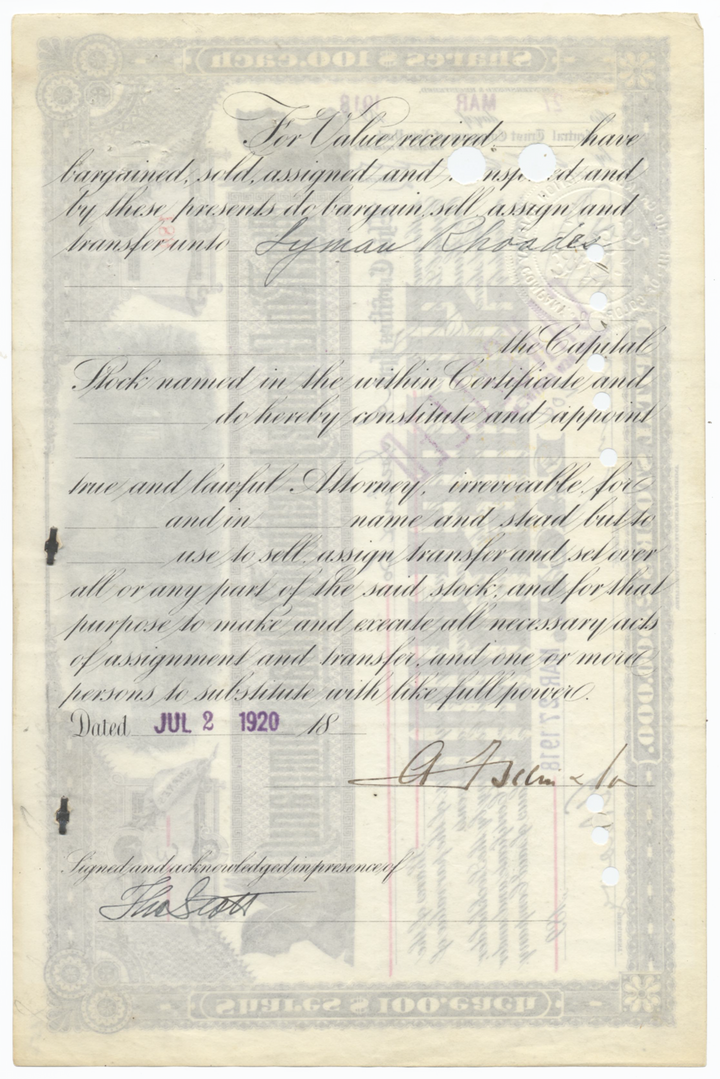 For Value received have
bargained, sold, assigned and nsp ed and
by these presents do bargain, sell, assign and
transfer unto Lyman Rhoades
the Capital
Stock named in the within Certificate and
do hereby constitute and appoint
true and lawful Attorney, irrevocable, for
and in name and stead but to
use to sell, assign transfer and set over
all or any part of the said stock, and for that
purpose to make and execute all necessary acts
of assignment and transfer, and one or more
persons to substitute with like full power.
Dated JUL 2 1920 18
Signed and acknowledged in presence of
Tho Scott